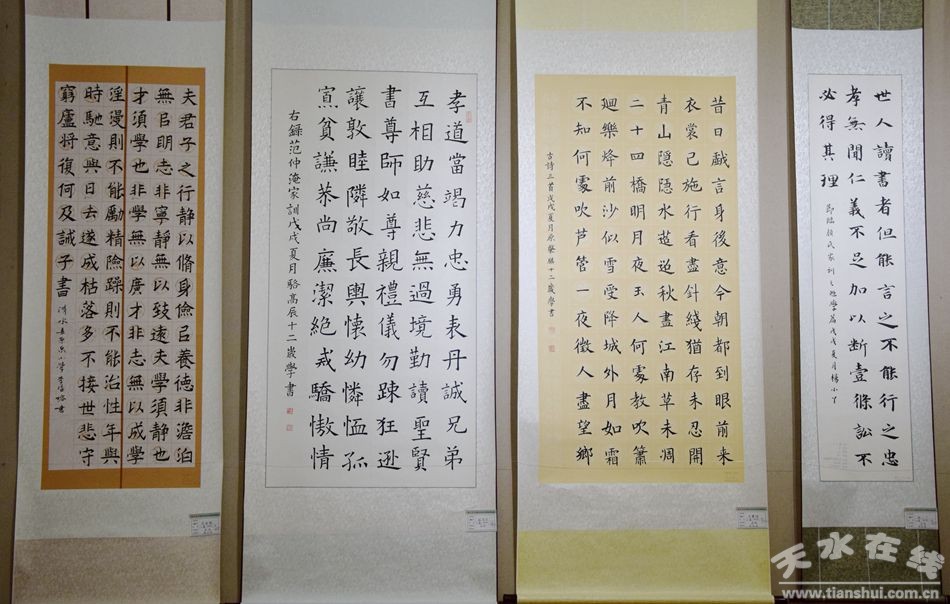 世人讀書者但能言之不能行之忠
孝無聞仁義不足加以斷壹條訟不
必得其理
節臨顏氏家訓之勉學篇戊戌夏月楊小丫
昔日戲言身後意今朝都到眼前来
衣裳已施行看盡針綫猶存未忍開
青山隱隱水迢迢秋盡江南草未凋
二十四橋明月夜玉人何處教吹簫
廻樂烽前沙似雪受降城外月如霜
不知何處吹芦管一夜徵人盡望鄉
古詩三首戊戌夏月原擎麒十二歲學書
孝道當竭力忠勇表丹誠兄弟
互相助慈悲無過境勤讀聖賢
書尊師如尊親禮儀勿踈狂遜
讓敦睦隣敬長與懷幼憐恤孤
寡貧謙恭尚廉潔絕戒驕傲情
右錄范仲淹家訓戊戌夏月駱高辰十二歲學書
夫君子之行静以脩身儉㠯養德非澹泊
無㠯明志非寧静無以致遠夫學須静也
才須學也非學無以廣才非志無以成學
淫漫則不能勵精險躁則不能治性年與
時馳意與日去遂成枯落多不接世悲守
窮廬将復何及誡子書
天水在线
www.tianshui.com.cn